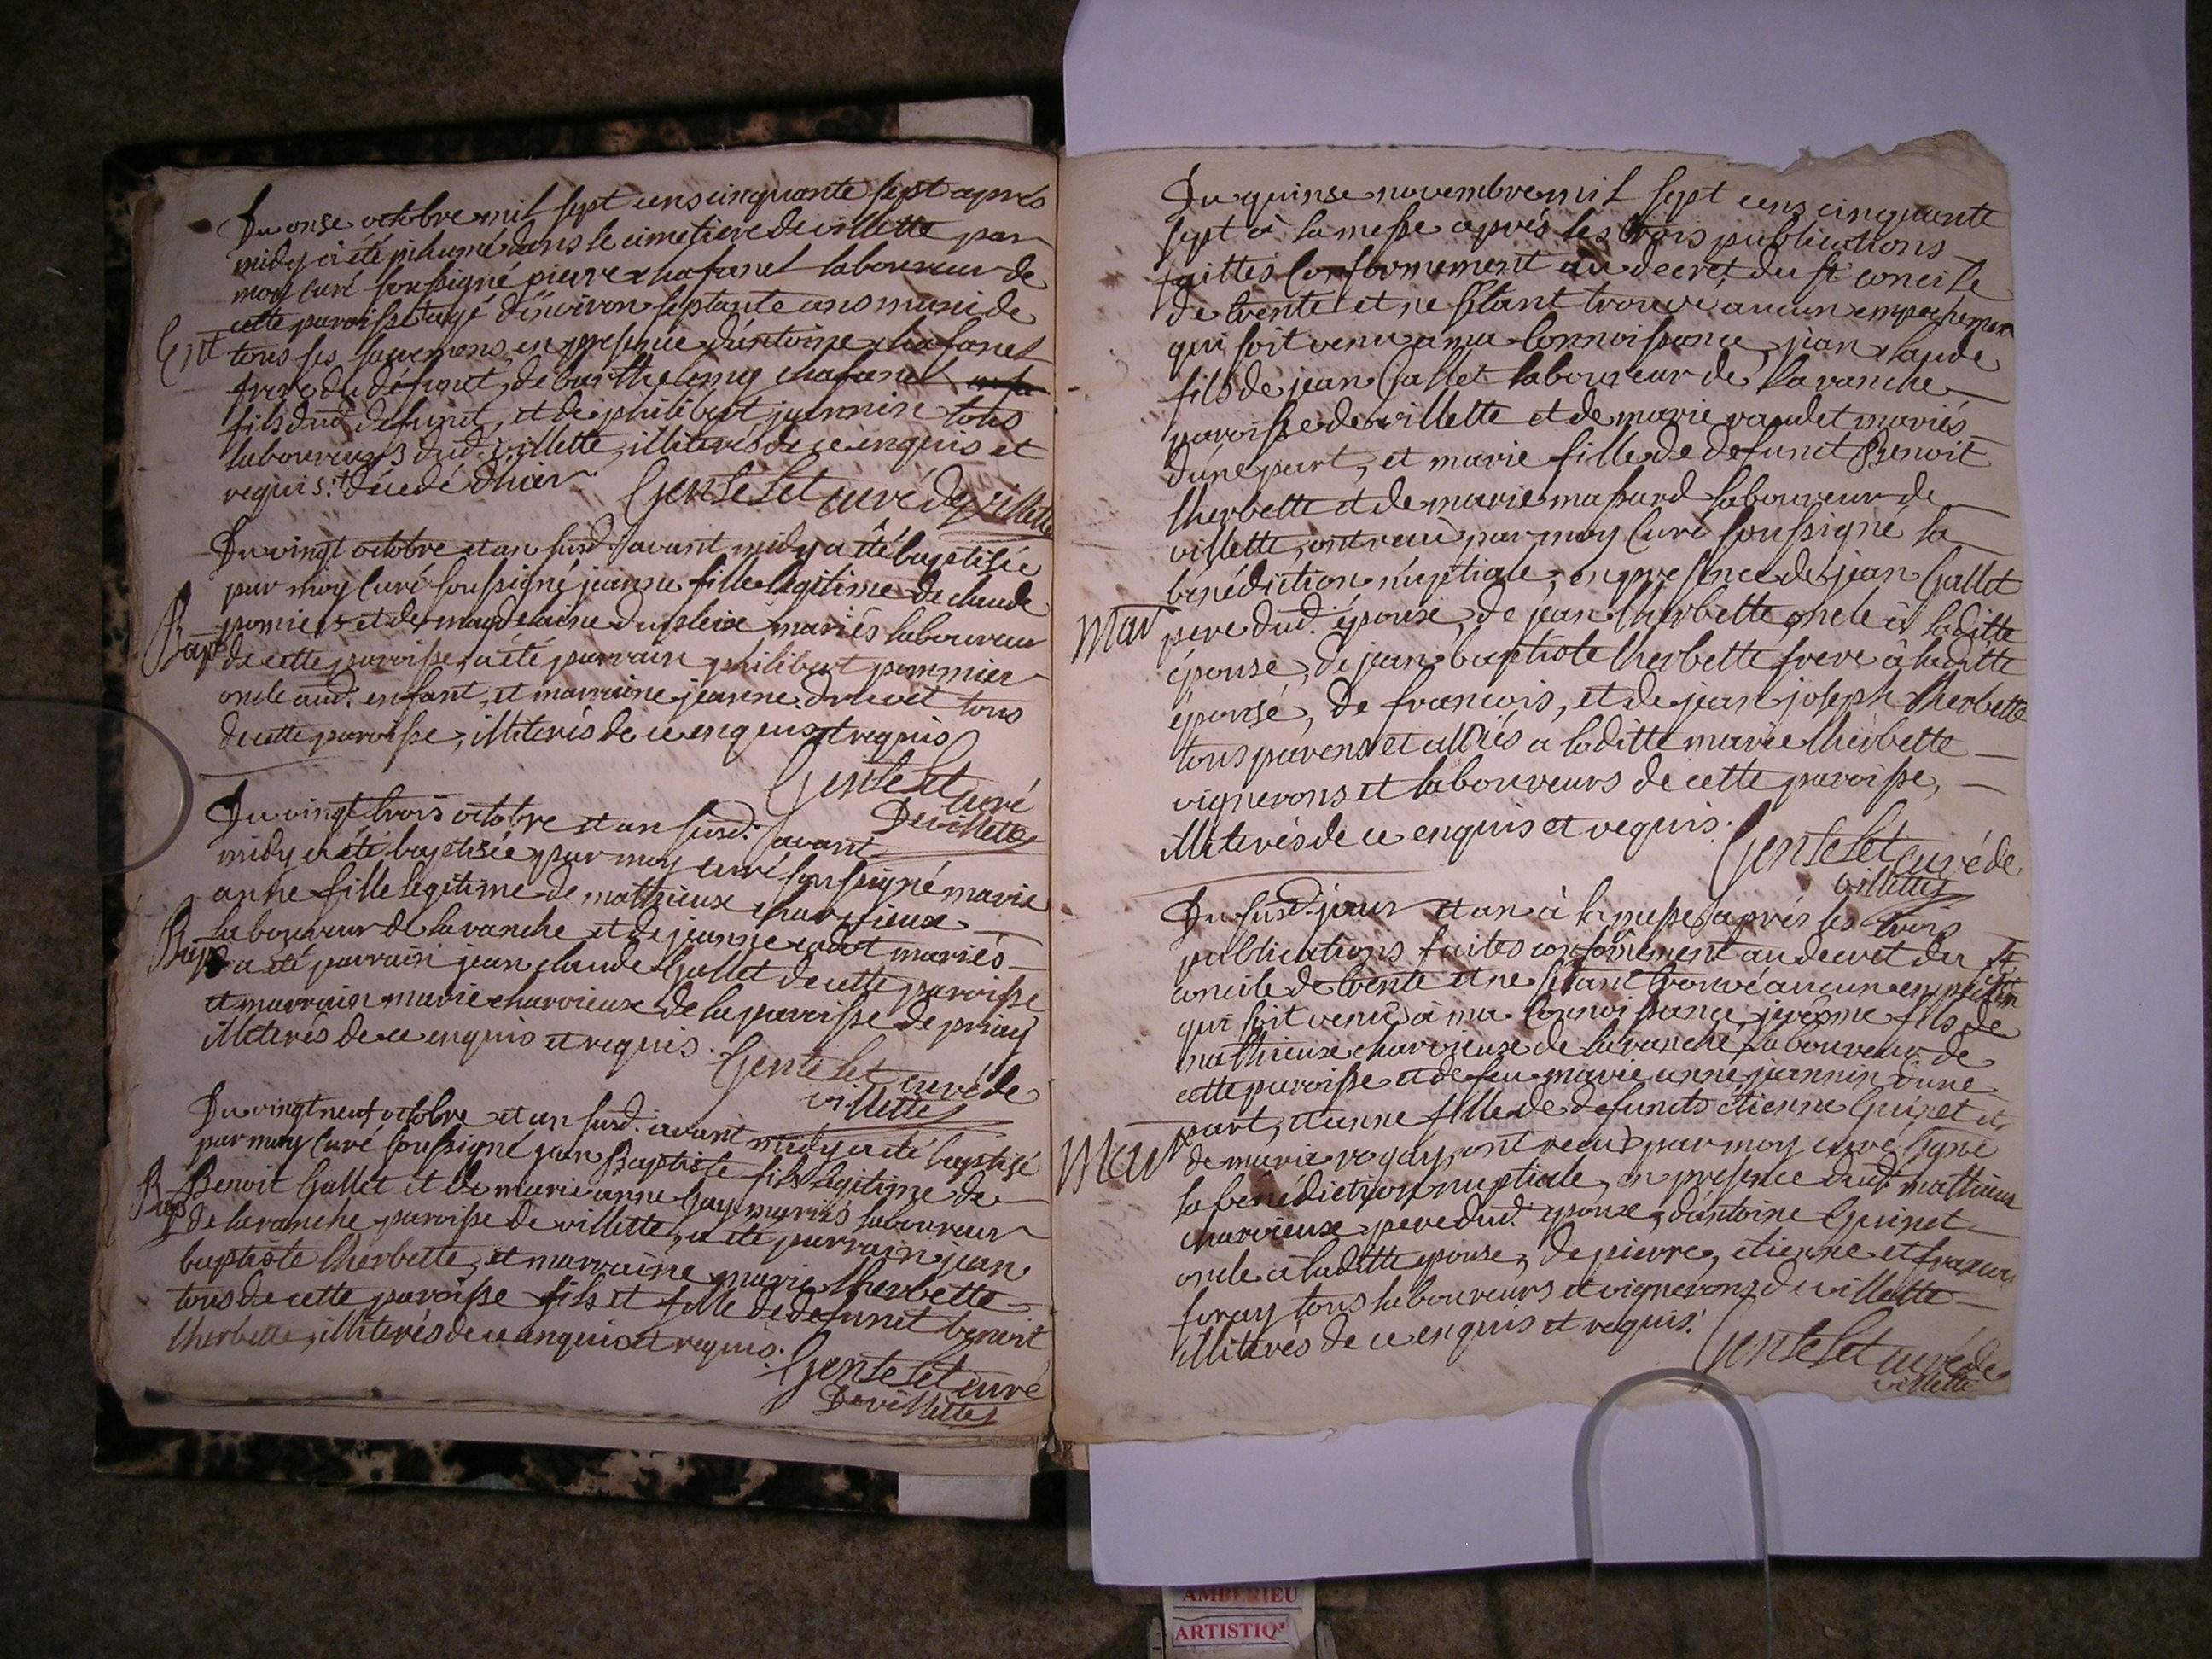 Du onse octobre mil sept cens cinquante sept aprés
midy a été inhumé dans le cimetiere de villette par
moy curé soussigné pierre chafanel laboureur de
cette paroisse agé d'environ septante ans muni de
Ent
tous ses sacremens en presence d'antoine chafanel
frere du défunct, de barthelemy chafanel
fils dud. defunct, et de philibert jeannin tous
laboureurs dud. villette, illiterés de ce enquis et
requis. decedé d'hier
Gentelet curé de villette
Du vingt octobre et an susd. avant midy a été baptisée
par moy curé soussigné jeanne fille legitime de claude
pomier et de magdelaine dupleix mariés laboureur
Bap
de cette paroisse, a été parrain philibert pommier
oncle aud. enfant, et marraine jeanne drevet tous
de cette paroisse, illiterés de ce enquis et requis
Gentelet curé
De villette
Du vingt trois octobre et an susd. avant
midy a été baptisée par moy curé soussigné marie
anne fille legitime de matthieux charvieux
laboureur de lavanche et de jeanne cadot mariés
Bap
a été parrain jean claude Gallet de cette paroisse
et marrain marie charvieux de la paroisse de priay
illiterés de ce enquis et requis.
Gentelet curé de
villette
Du vingt neuf octobre et an susd. avant midy a été baptisé
par moy curé soussigné jean Baptiste fils legitime de
Bap
Benoit Gallet et de marie anne Gay mariés laboureur
de lavanche paroisse de villette, a été parrain jean
baptiste lherbette, et marraine marie lherbette
tous de cette paroisse fils et fille de defunct benoit
lherbette, illiterés de ce enquis et requis.
Gentelet curé
De villette
Du quinse novembre mil sept cens cinquante
sept à la messe aprés les trois publications
faittes Conformement au decret du st concile
de trente et ne s'étant trouvé aucun empechement
qui soit venu a ma Connoissance, jean claude
fils de jean Gallet laboureur de lavanche
paroisse de villette et de marie vaudet mariés
d'une part, et marie fille de defunct Benoit
lherbette et de marie massard laboureur de
villette, ont reçu par moy Curé soussigné la
bénédiction nuptiale, en presence de jean Gallet
Mar
pere dud. époux, de jean lherbette oncle à laditte
épouse, de jean baptiste lherbette frere à laditte
épouse, de francois, et de jean joseph lherbette
tous parens et alliés a laditte marie lherbette
vignerons et laboureurs de cette paroisse,
illiterés de ce enquis et requis.
Gentelet curé de
villette
Du susd. jour et an à la messe aprés les trois
publications faites conformement au decret du st
concile de trente et ne s'étant trouvé aucun
qui soit venu à ma Connoissance, jerôme fils de
matthieux charvieux de lavanche laboureur de
cette paroisse et de feu marie anne jeannin d'une
part, et anne fille de defuncts étienne Guinet et
Mar
de marie rogay, ont reçu par moy curé signé
la bénédiction nuptiale, en presence dud. mathieux
charvieux pere dud. époux, d'antoine Guinet
oncle à laditte epouse, de pierre, étienne et francois
foray tous laboureurs et vignerons de villette
illiterés de ce enquis et requis.
Gentelet curé de
villette
AMBERIEU
ARTISTIQ